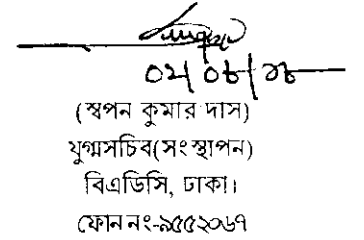 (স্বপন কুমার দাস)
যুগ্মসচিব(সংস্থাপন)
বিএডিসি, ঢাকা।
ফোন নং-৯৫৫২০৬৭